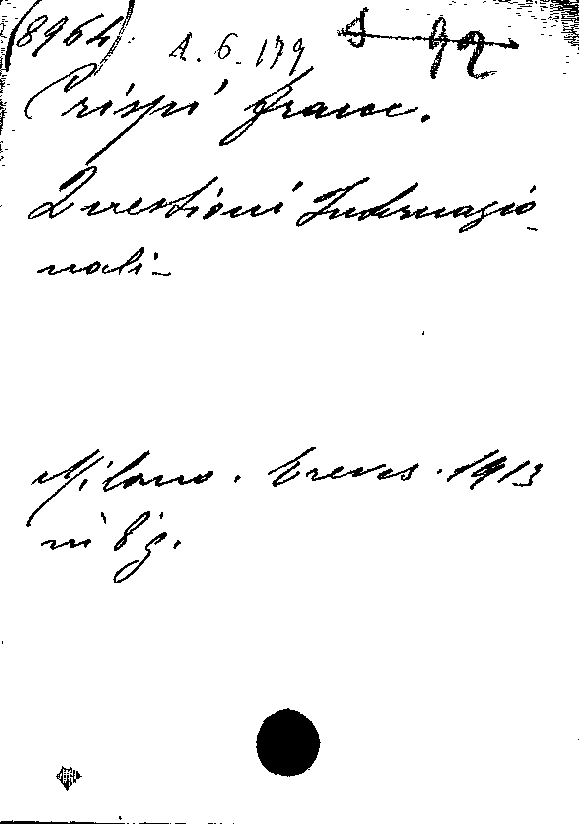 (8964) A. 6. 179
Crispi Franc.
Questioni Internazio-
nali-
Milano. Treves. 1913
in 8g.